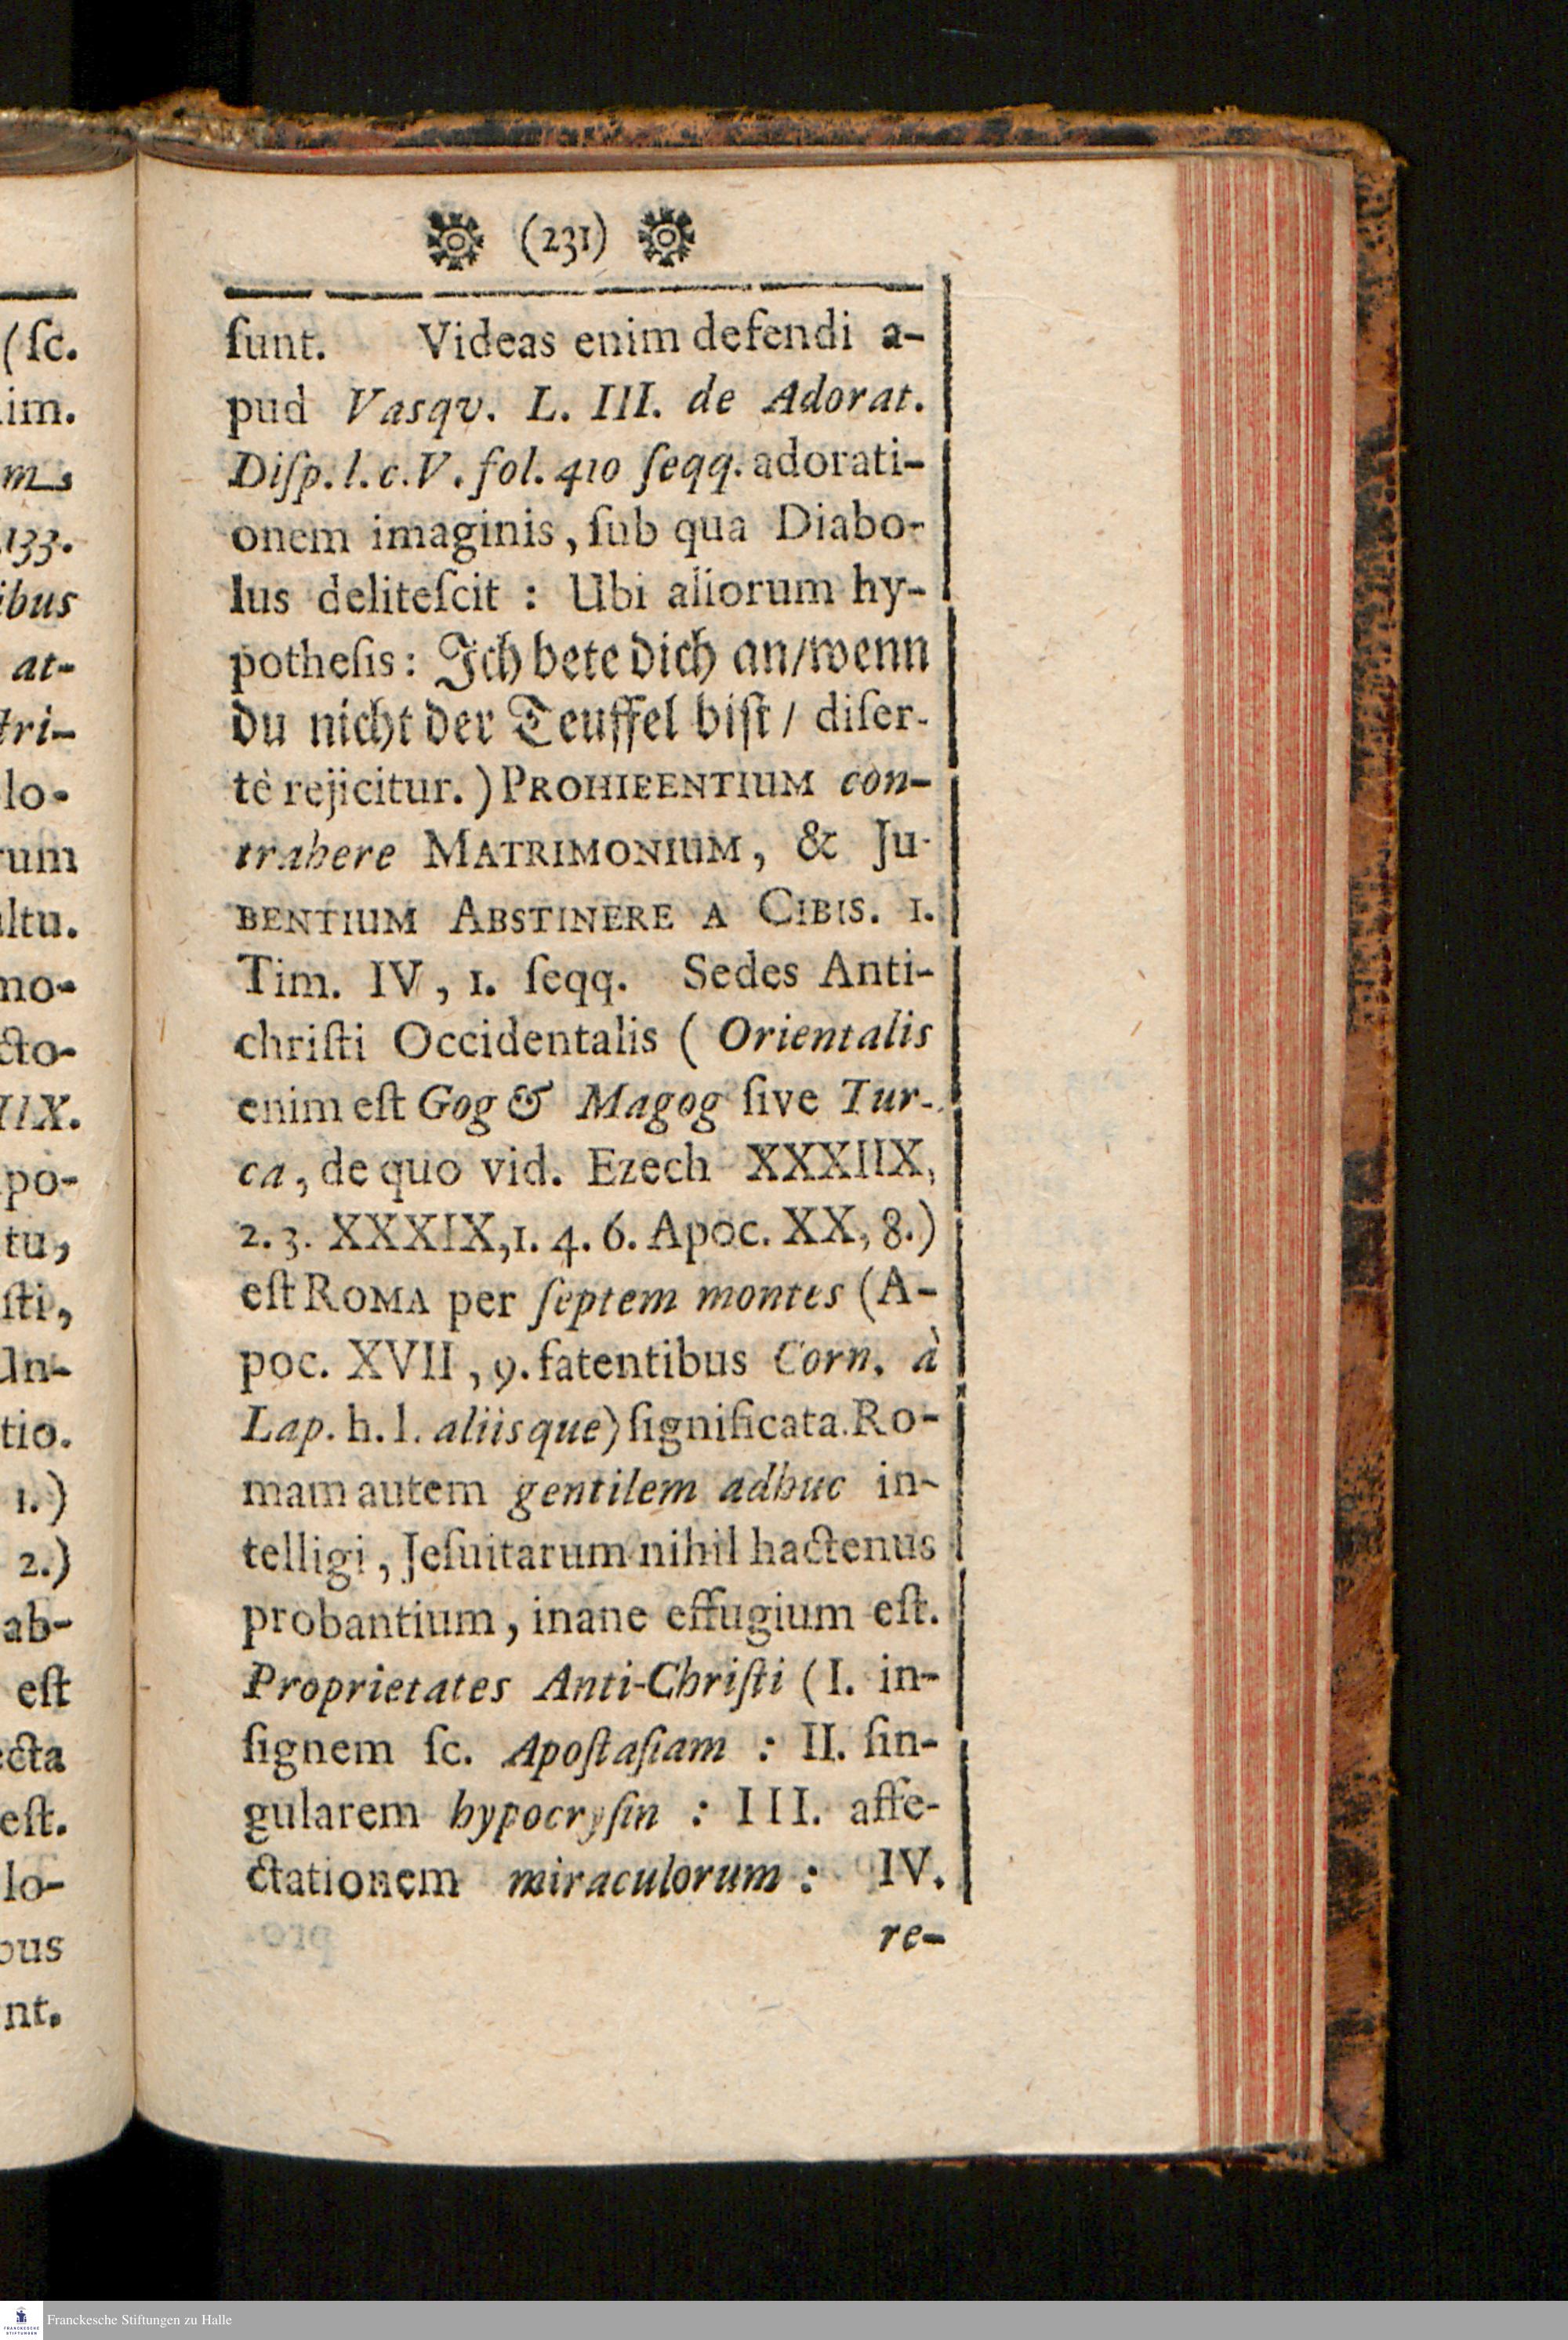 (231)
ſunt. Videas enim defendi a-
pud Vasqv. L. III. de Adorat.
Diſp. l. c. V. fol. 410 ſeqq. adorati-
onem imaginis, ſub qua Diabo-
lus deliteſcit : Ubi aliorum hy-
potheſis: Ich bete dich an/wenn
du nicht der Teuffel biſt / diſer-
tè rejicitur.) PROHIBENTIUM con-
trahere MATRIMONIUM, & Ju-
BENTIUM ABSTINERE A CIBIS. 1.
Tim. IV, 1. ſeqq. Sedes Anti-
chriſti Occidentalis ( Orientalis
enim eſt Gog & Magog ſive Tur-
ca, de quo vid. Ezech XXXIIX,
2. 3. XXXIX,1. 4. 6. Apoc. XX, 8.)
eſt ROMA per ſeptem montes (A-
poc. XVII, 9. fatentibus Corn. à
Lap. h. l. aliisque) ſignificata. Ro-
mam autem gentilem adhuc in-
telligi, Jeſuitarum nihil hactenus
probantium, inane effugium eſt.
Proprietates Anti-Chriſti (I. in-
ſignem ſc. Apoſtaſiam : II. ſin-
gularem hypocryſin : III. affe-
ctationem miraculorum : IV.
re-
(ſc.
im.
m,
133.
ibus
at-
tri-
lo-
rum
ultu.
mo-
cto-
IIX.
po-
tu,
ſti,
In-
tio.
1.)
2.)
ab-
eſt
ecta
eſt.
lo-
bus
nt.
Franckesche Stiftungen zu Halle
FRANCKESCHE
STIFTUNGEN